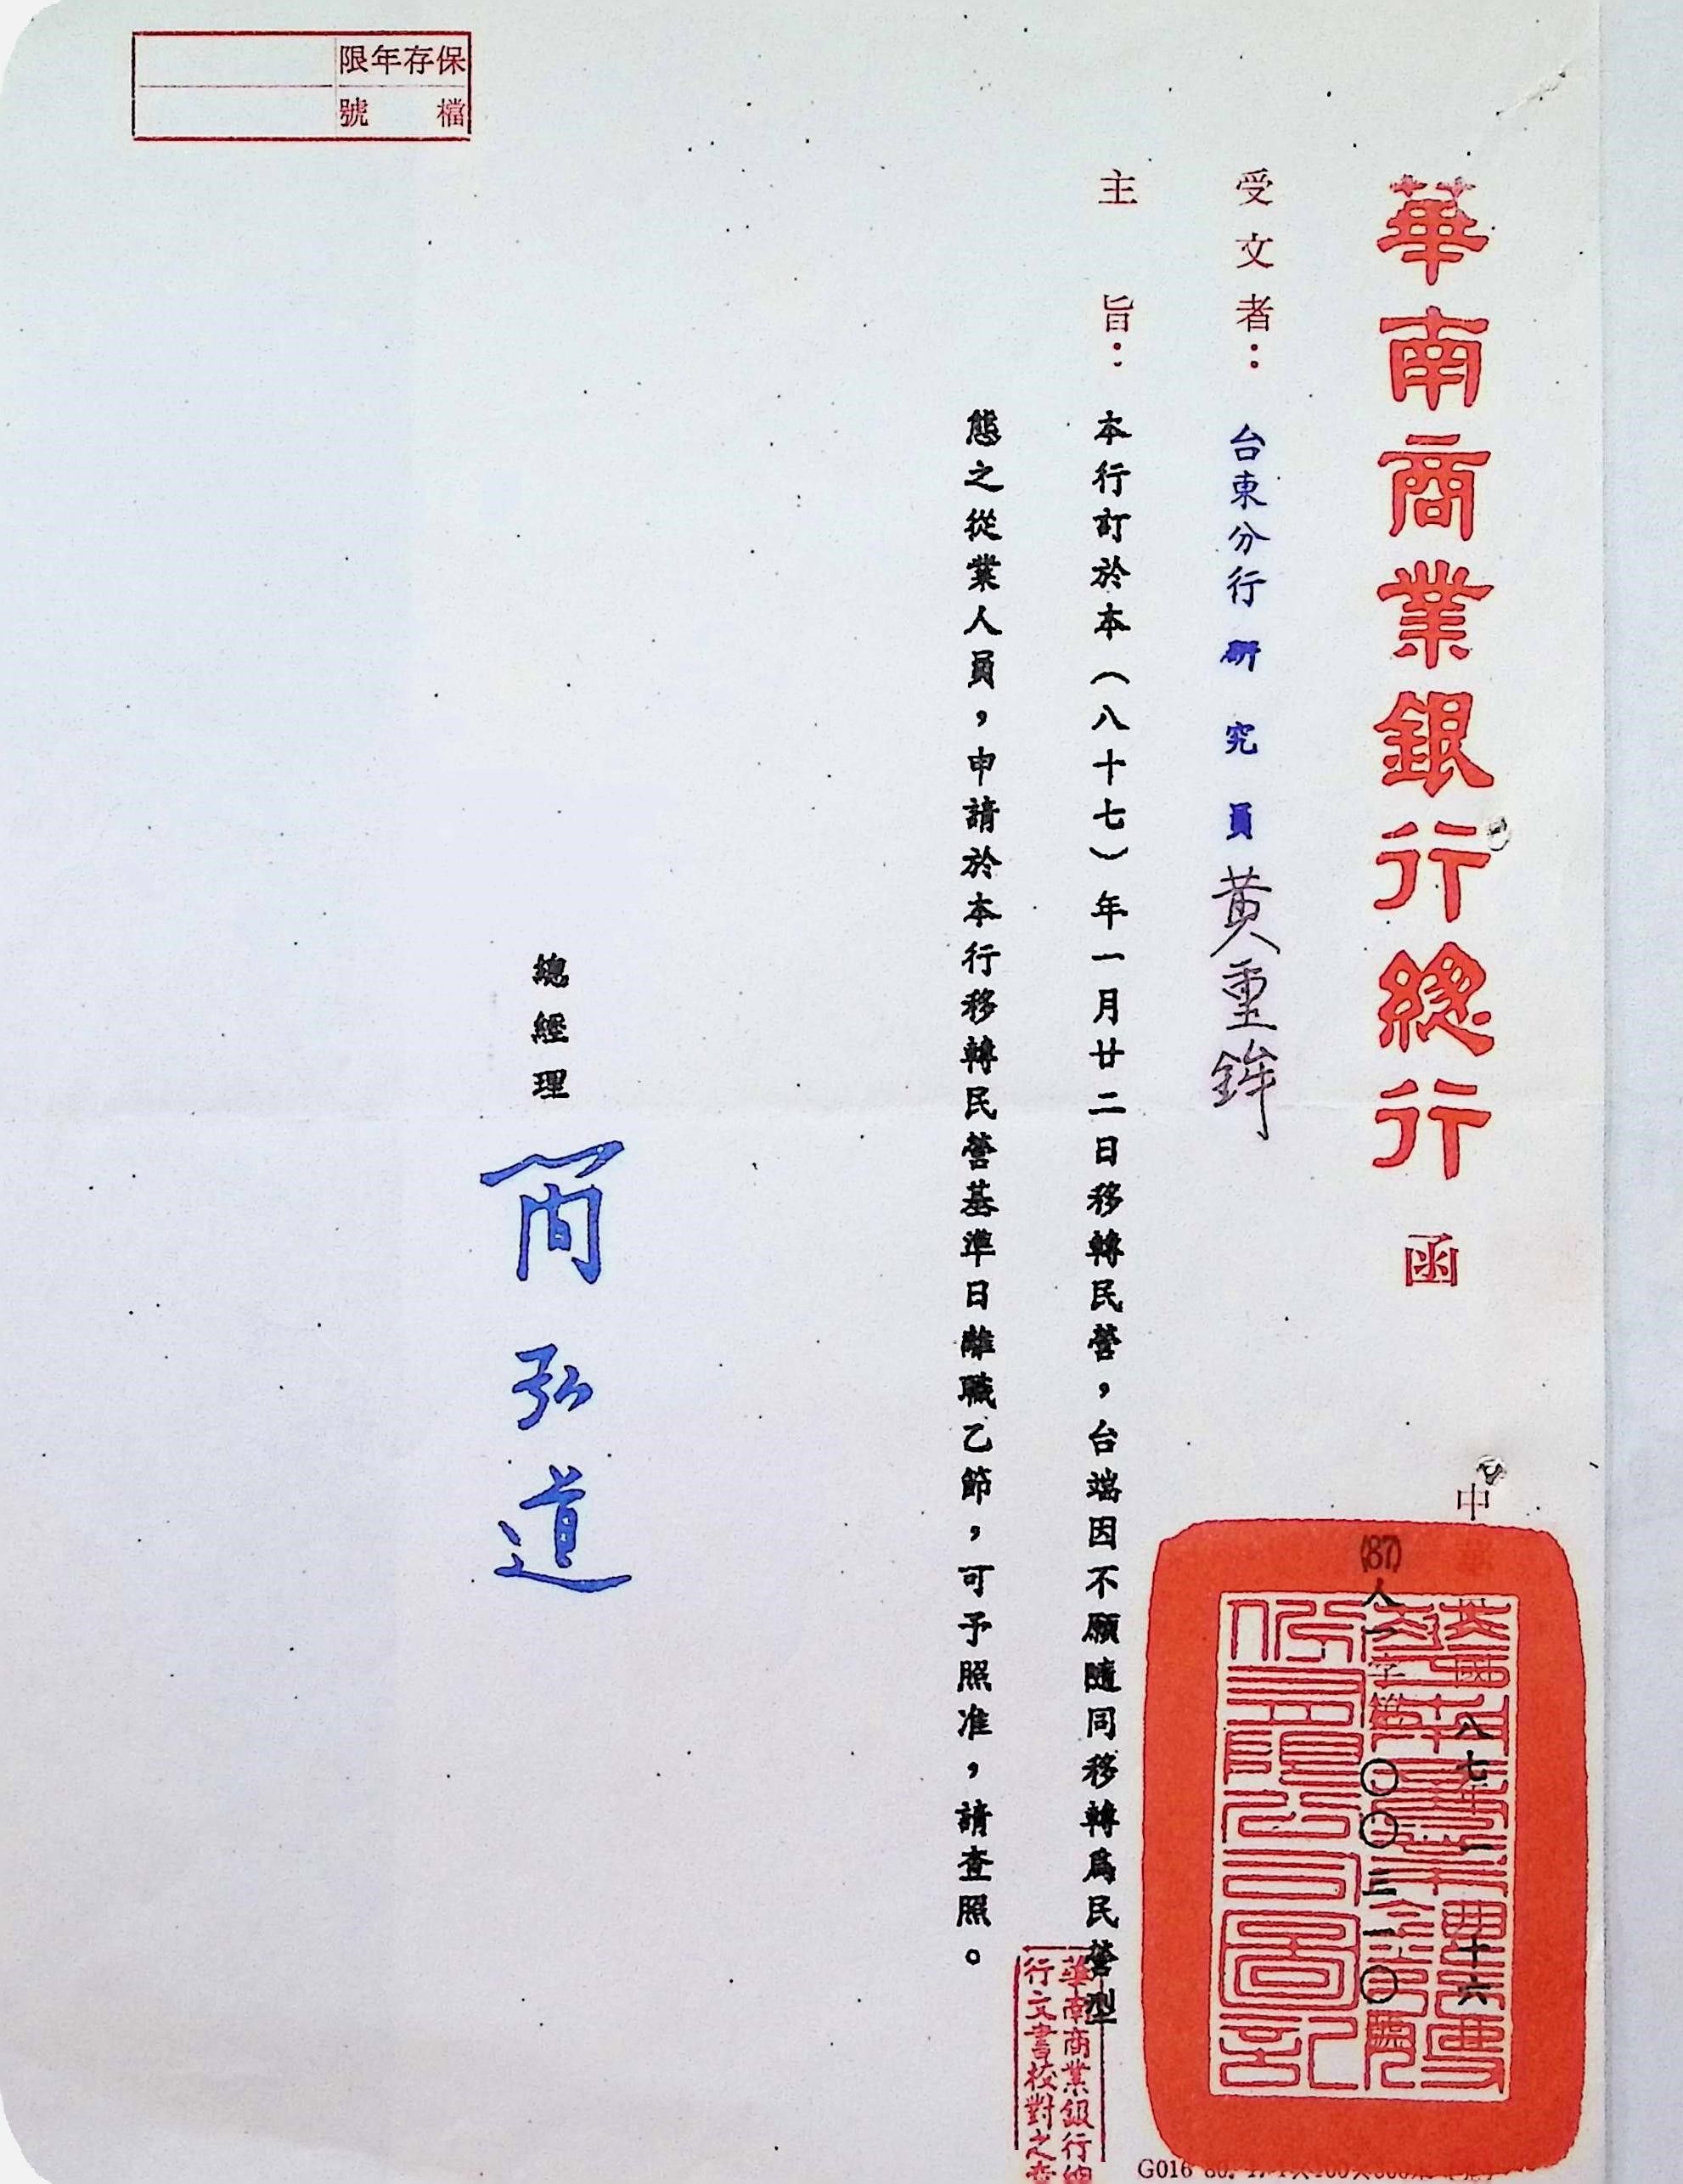 保存年限
檔號
華南商業銀行總行 函
中華民國八七年一月十六
(87)人一字第〇〇三一〇號
受文者：台東分行 研究員 黃重鉾
主旨：本行訂於本（八十七）年一月廿二日移轉民營，台端因不願隨同移轉爲民營型
態之從業人員，申請於本行移轉民營基準日離職乙節，可予照准，請查照。
華南商業銀行總
行文書校對之章
總經理 簡弘道
G016